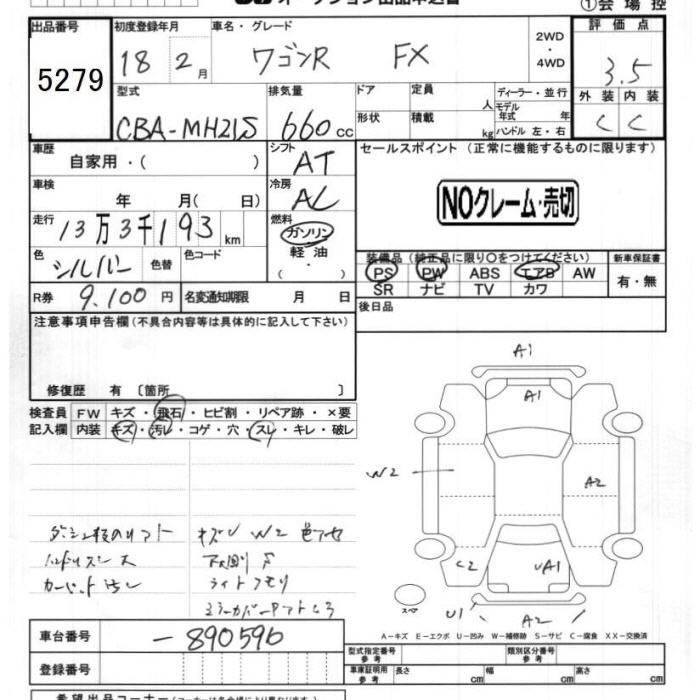 ①会場控
出品番号 初度登録年月 車名・グレード 2WD・4WD 評価点
5279 18 2月 ワゴンR FX 3.5
型式 排気量 ドア 定員 人 ディーラー・並行 外装 内装
CBA-MH21S 660cc 形状 積載 kg モデル年式 年式 ハンドル 左・右 C C
車歴 自家用・( ) シフト AT セールスポイント(正常に機能するものに限ります)
車検 年 月( 日) 冷房 AC NOクレーム・売切
走行 13万3千193km 燃料 ガソリン 軽油 ( ・ )
色 シルバー 色替 色コード 装備品(純正品に限り○をつけてください) 新車保証書
PS PW ABS エアB AW 有・無
SR ナビ TV カワ
R券 9,100円 名変通知期限 月 日 後日品
注意事項申告欄(不具合内容等は具体的に記入して下さい)
修復歴 有〔箇所 〕
検査員 FW キズ・飛石・ヒビ割・リペア跡・×要
記入欄 内装 キズ・汚レ・コゲ・穴・スレ・キレ・破レ
A1
A1
W2
A2
C2 UA1
スペア U1 A2
キズU W2
ハンドルスレ 大
カーペット汚レ ライトクモリ
A-キズ E-エクボ U-凹み W-補修跡 S-サビ C-腐食 XX-交換済
車台番号 -890596 型式指定番号 参考 類別区分番号 参考
登録番号 車庫証明用 参考 長さ cm 幅 cm 高さ cm
希望出品コーナー